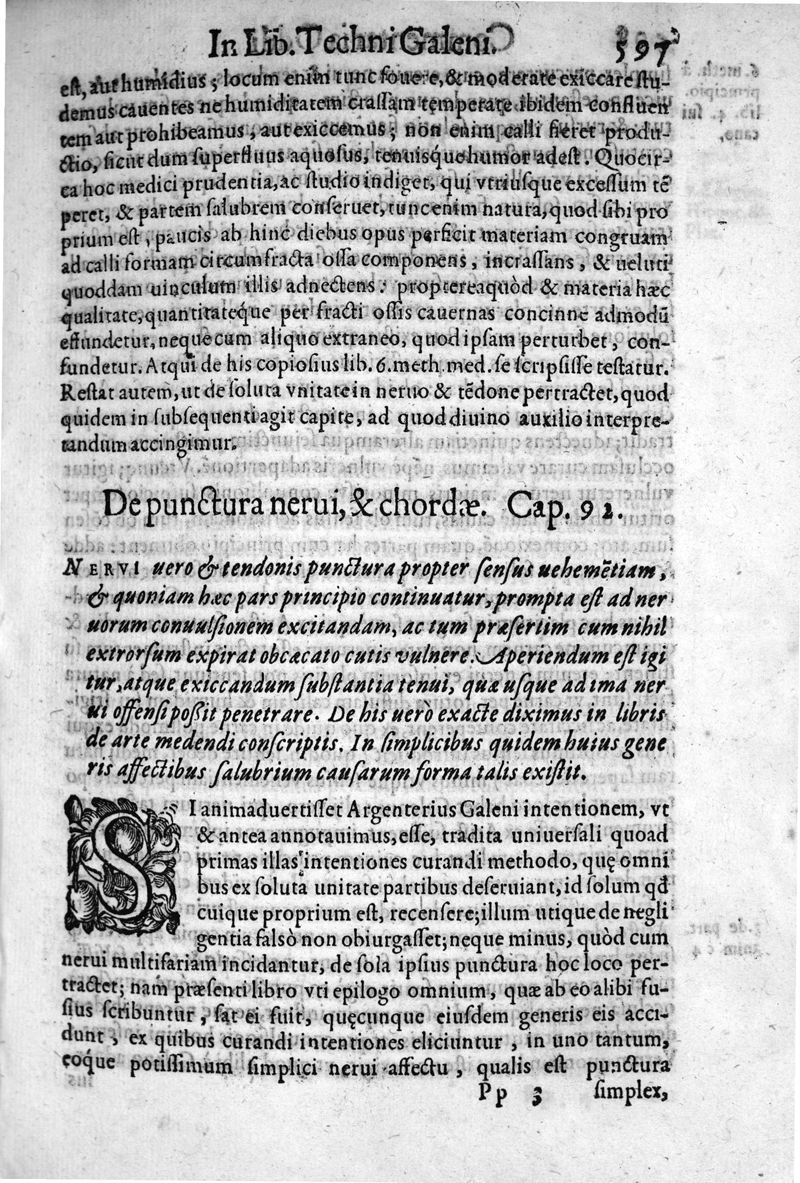 In Lib. Techni Galeni. 597
est, aut humidius; locum enim tunc fouere, & moderate exiccare stu-
demus cauentes ne humiditatem crassam temperate ibidem confluen
tem aut prohibeamus, aut exiccemus; non enim calli fieret produ-
ctio, sicut dum superfluus aquosus, tenuisque humor adest. Quocir-
ca hoc medici prudentia, ac studio indiget, qui vtriusque excessum tē
peret, & partem salubrem conseruet, tunc enim natura, quod sibi pro
prium est, paucis ab hinc diebus opus perficit materiam congruam
ad calli formam circumfracta ossa componens, incrassans, & ueluti
quoddam uinculum illis adnectens: proptereaquòd & materia hæc
qualitate, quantitateque per fracti ossis cauernas concinne admodū
effundetur, neque cum aliquo extraneo, quod ipsam perturbet, con-
fundetur. Atqui de his copiosius lib. 6. meth. med. se scripsisse testatur.
Restat autem, ut de soluta vnitate in neruo & tēdone pertractet, quod
quidem in subsequenti agit capite, ad quod diuino auxilio interpre-
tandum accingimur.
De punctura nerui, & chordæ. Cap. 92.
NERVI uero & tendonis punctura propter sensus uehemētiam,
& quoniam hæc pars principio continuatur, prompta est ad ner
uorum conuulsionem excitandam, ac tum præsertim cum nihil
extrorsum expirat obcæcato cutis vulnere. Aperiendum est igi
tur, atque exiccandum substantia tenui, quæ usque ad ima ner
ui offensi possit penetrare. De his uerò exacte diximus in libris
de arte medendi conscriptis. In simplicibus quidem huius gene
ris affectibus salubrium causarum forma talis existit.
SI animaduertisset Argenterius Galeni intentionem, vt
& antea annotauimus, esse, tradita uniuersali quoad
primas illas intentiones curandi methodo, quę omni
bus ex soluta unitate partibus deseruiant, id solum qđ
cuique proprium est, recensere; illum utique de negli
gentia falsò non obiurgasset; neque minus, quòd cum
nerui multifariam incidantur, de sola ipsius punctura hoc loco per-
tractet; nam præsenti libro vti epilogo omnium, quæ ab eo alibi fu-
sius scribuntur, sat ei fuit, quęcunque eiusdem generis eis acci-
dunt, ex quibus curandi intentiones eliciuntur, in uno tantum,
eoque potissimum simplici nerui affectu, qualis est punctura
Pp 3 simplex,